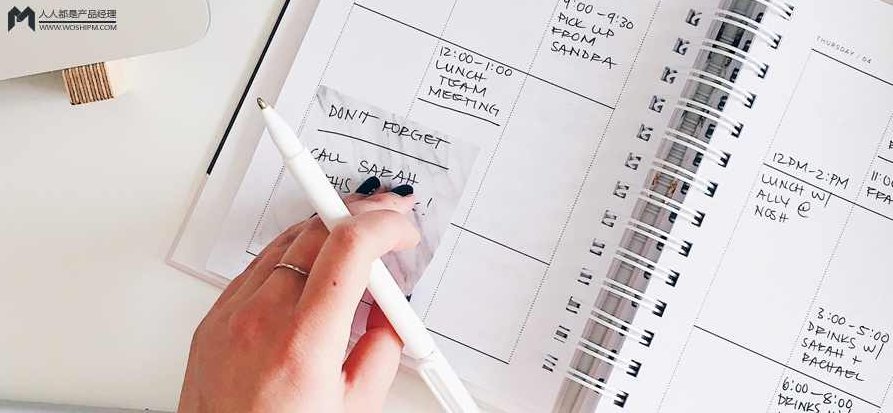 人人都是产品经理
WWW.WOSHIPM.COM
9:00-9:30
PICK UP
FROM
SANDRA
12:00-1:00
LUNCH
TEAM
MEETING
DON'T FORGET
CALL SARAH
THIS
!
THURSDAY / 04
12PM-2PM
LUNCH W/
ALLY @
NOSH
11:00
3:00-5:00
DRINKS W/
SARAH +
RACHAEL
6:00-8:00
DRINKS